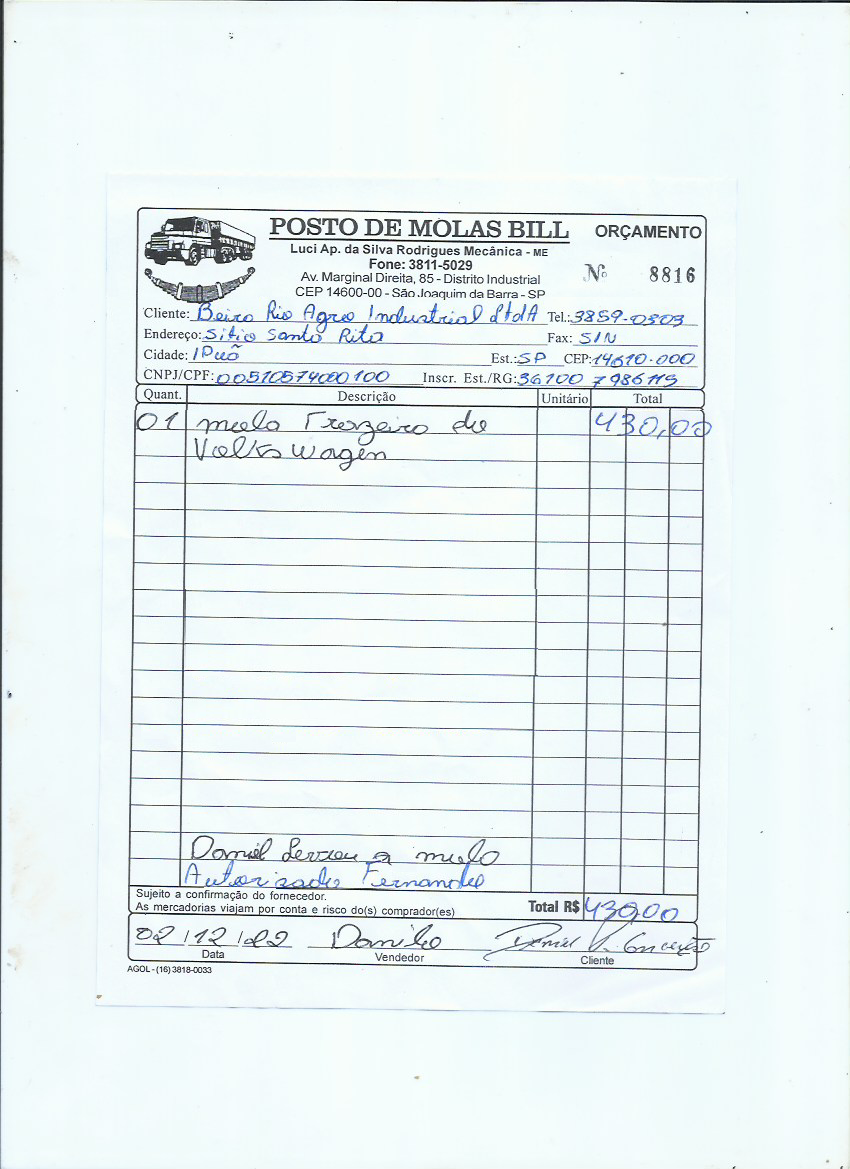 POSTO DE MOLAS BILL ORÇAMENTO
Luci Ap. da Silva Rodrigues Mecânica - ME
Fone: 3811-5029
Av. Marginal Direita, 85 - Distrito Industrial
CEP 14600-00 - São Joaquim da Barra - SP
Nº 8816
Cliente: Beira Rio Agro Industrial LtdA Tel.: 3859-0303
Endereço: Sítio Santa Rita Fax: S/N
Cidade: IPuã Est.: SP CEP: 14610-000
CNPJ/CPF: 00510574000100 Inscr. Est./RG: 36100 7986115
Quant. Descrição Unitário Total
01 mola Trazeira do 430,00
Volks Wagen
Daniel Levou a mola
Autorizado Fernando
Sujeito a confirmação do fornecedor.
As mercadorias viajam por conta e risco do(s) comprador(es) Total R$ 430,00
02/12/22 Danilo Daniel Conceição
Data Vendedor Cliente
AGOL - (16) 3818-0033